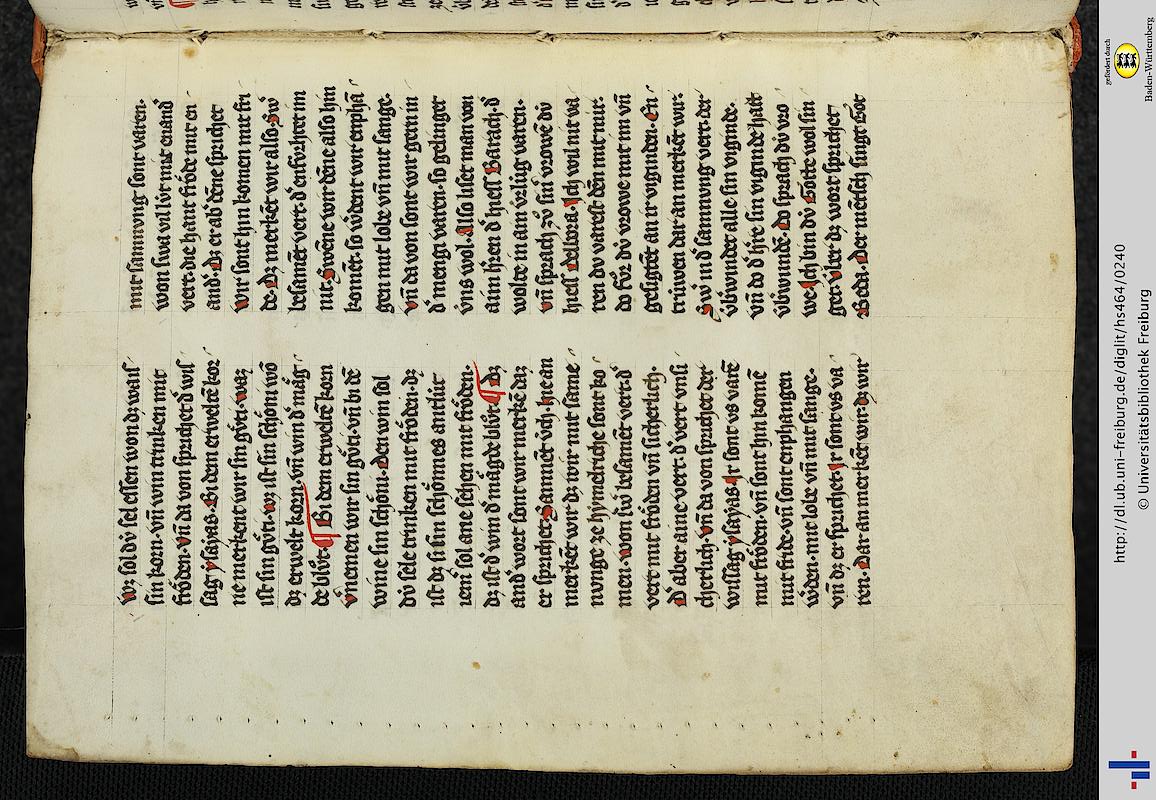 wz sol dv́ sel essen won dz waiſ
sin korn · vn̄ win trinken mit
frỏden · vn̄ da von sprichet d' wiſ
sag ysayas · Bi dem erwelrē kor
ne merkent wir sin gv̊ti · waz
ist sin gv̊ti · wz ist sin schỏni wō
dz erwelt korn · vn̄ win d' mǎg
de blv̊t · ¶ Bi dem erwelrē korn
v'nemen wir sin gv̊ti · vn̄ bi dē
wine sin schỏni · Den win sol
dv́ sele trinken mit frỏden · dz
ist dz si sin schỏnes antlút
iem' sol ane sehen mit frỏden ·
dz ist d' win d' mǎgde blv̊t · ¶ Dz
and' wort sont wir merkē daz
er sprichet · Samnēt v́ch ·
merkēt wir dz wir mit same
nvnge ze hymelriche sont ko
men · won swͥ besamēt vert · d'
vert mit frỏden vn̄ sicherlich ·
D' aber aine vert · d' vert vnsi
cherlich · vn̄ da von sprichet der
wissag ysayas · Ir sont vs varē
mit frỏden · vn̄ sont hin komē
mit fride · vn̄ sont enphangen
w'den · mit lobe vn̄ mit sange ·
vn̄ dz er sprichet · Ir sont vs va
ren · Dar an merkēt wir · dz wir
mit samnvng sont varen ·
won swa vil lv́t mit enand'
vert · die hant frỏde mit en
and' · Dz er ab' dēne sprichet
wir sont hin komen mit fri
de · Dz merkēt wir also · Sw'
besamēt vert · d' enfv́rhtet im
nit · Swēne wir dēne also hin
komēt · so w'dent wir enphā
gen mit lobe vn̄ mit sange ·
vn̄ da von sont wir gern in
d' mengi varen · so gelinget
v́ns wol · Also liset man von
aim h'ren d' hiess Barach · d'
wolte in ain vrlúg varen ·
vn̄ sprach zv̊ sin' vrowē dv́
hiess Delbora · Ich wil nit va
ren dv varest dēn mit mir ·
do fv̊r dv́ vrowe mit im vn̄
geligēt an ir viginden · En
trúwen dar an merkēt wir ·
Sw' in d' samnvng vert · der
v́bwindet alle sin viginde ·
vn̄ do d' h're sin viginde hatt
v́bwundē · Do sprach dv́ vro
we · Ich bin dv́ Gotte wol sin
gen · v́ber dz wort sprichet
Beda · Der mēsch singt Got
http://dl.ub.uni-freiburg.de/diglit/hs464/0240
© Universitätsbibliothek Freiburg
gefördert durch
Baden-Württemberg